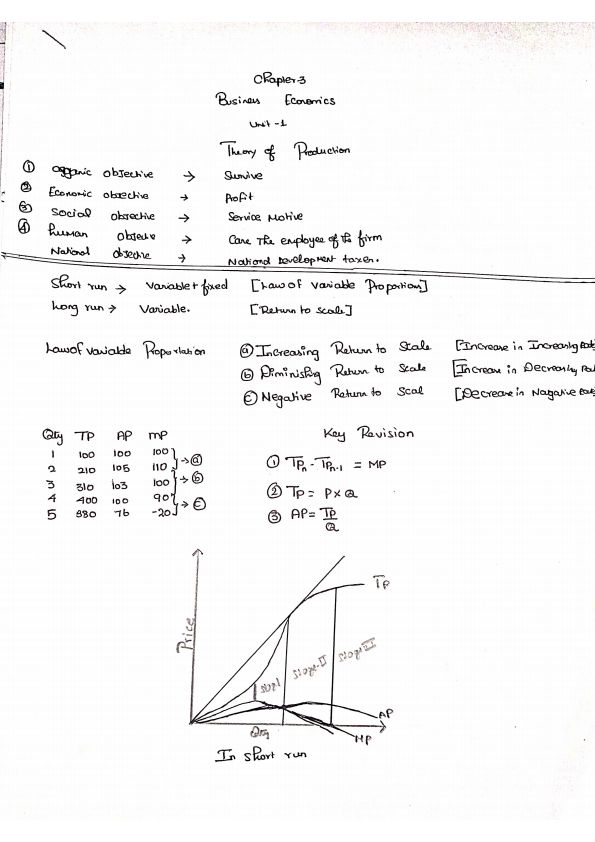 Chapter-3
Business Economics
Unit-1
Theory of Production
① Organic objective → Survive
② Economic objective → Profit
③ Social objective → Service Motive
④ human objective → Care The employee of the firm
National objective → National Development taxes.
Short run → Variable + fixed [Law of Variable Proportion]
Long run → Variable. [Return to scale]
Law of Variable Proportation ⓐ Increasing Return to Scale [Increase in Increasing
ⓑ Diminishing Return to Scale [Increase in Decreasing
ⓒ Negative Return to Scal [Decrease in Nagative
Qty TP AP MP Key Revision
1 100 100 100
2 210 105 110 → ⓐ ① TPn - TPn-1 = MP
3 310 103 100 → ⓑ
4 400 100 90 → ⓒ ② TP = P x Q
5 380 76 -20 ③ AP = TP/Q
TP
Price
Stage-II
AP
MP
Qty
In short run